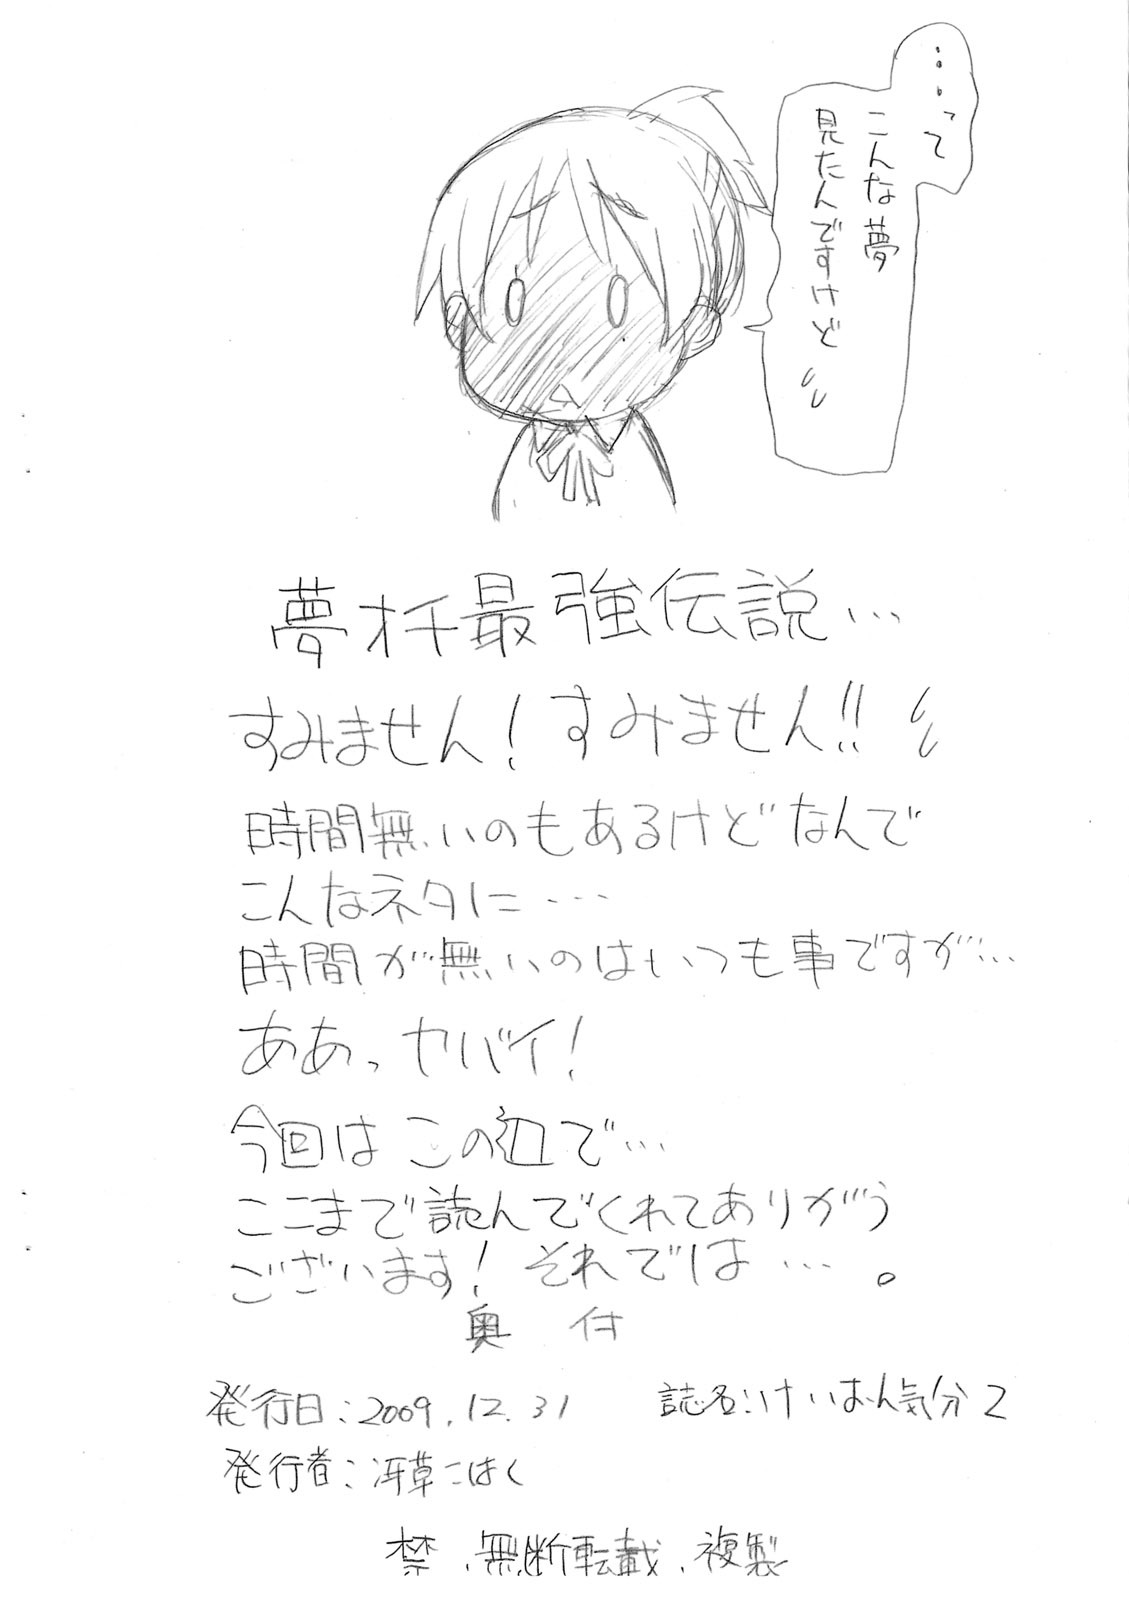 …って
こんな夢
見たんですけど
夢オチ最強伝説…
すみません！すみません!!
時間無いのもあるけどなんで
こんなネタに…
時間が無いのはいつも事ですが…
ああっヤバイ！
今回はこの辺で…
ここまで読んでくれてありがう
ございます！それでは…。
奥付
発行日：2009.12.31 誌名：けいおん気分2
発行者：冴草こはく
禁、無断転載、複製